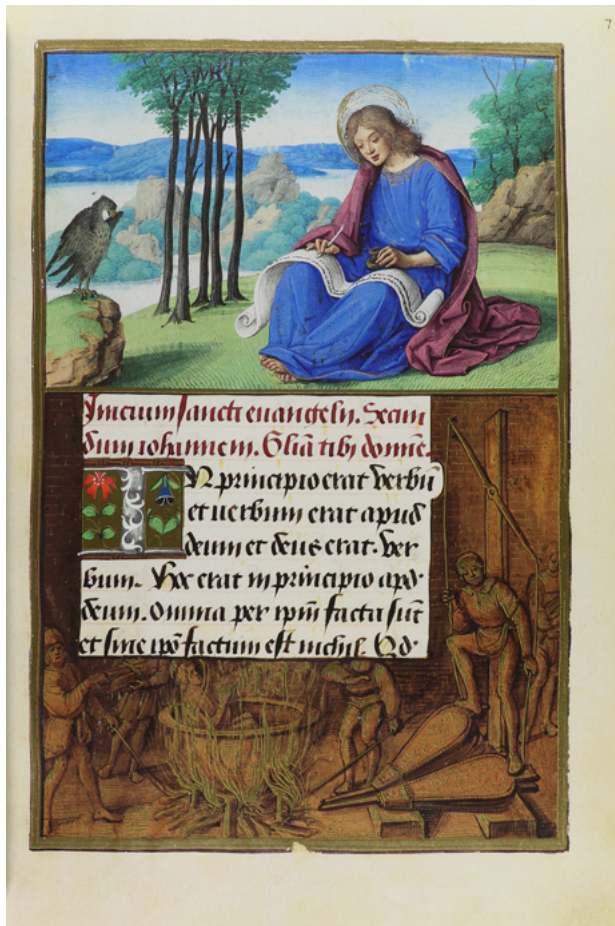 7
Inicium sancti euangelij. Secun
dum iohannem. Gliã tibi domine.
IN principio erat verbũ
et uerbum erat apud
deum et deus erat. ver
bum. Hoc erat in principio apd·
deum. Omnia per ipm̃ facta sũt
et sine ipõ factum est nichil. Qd·